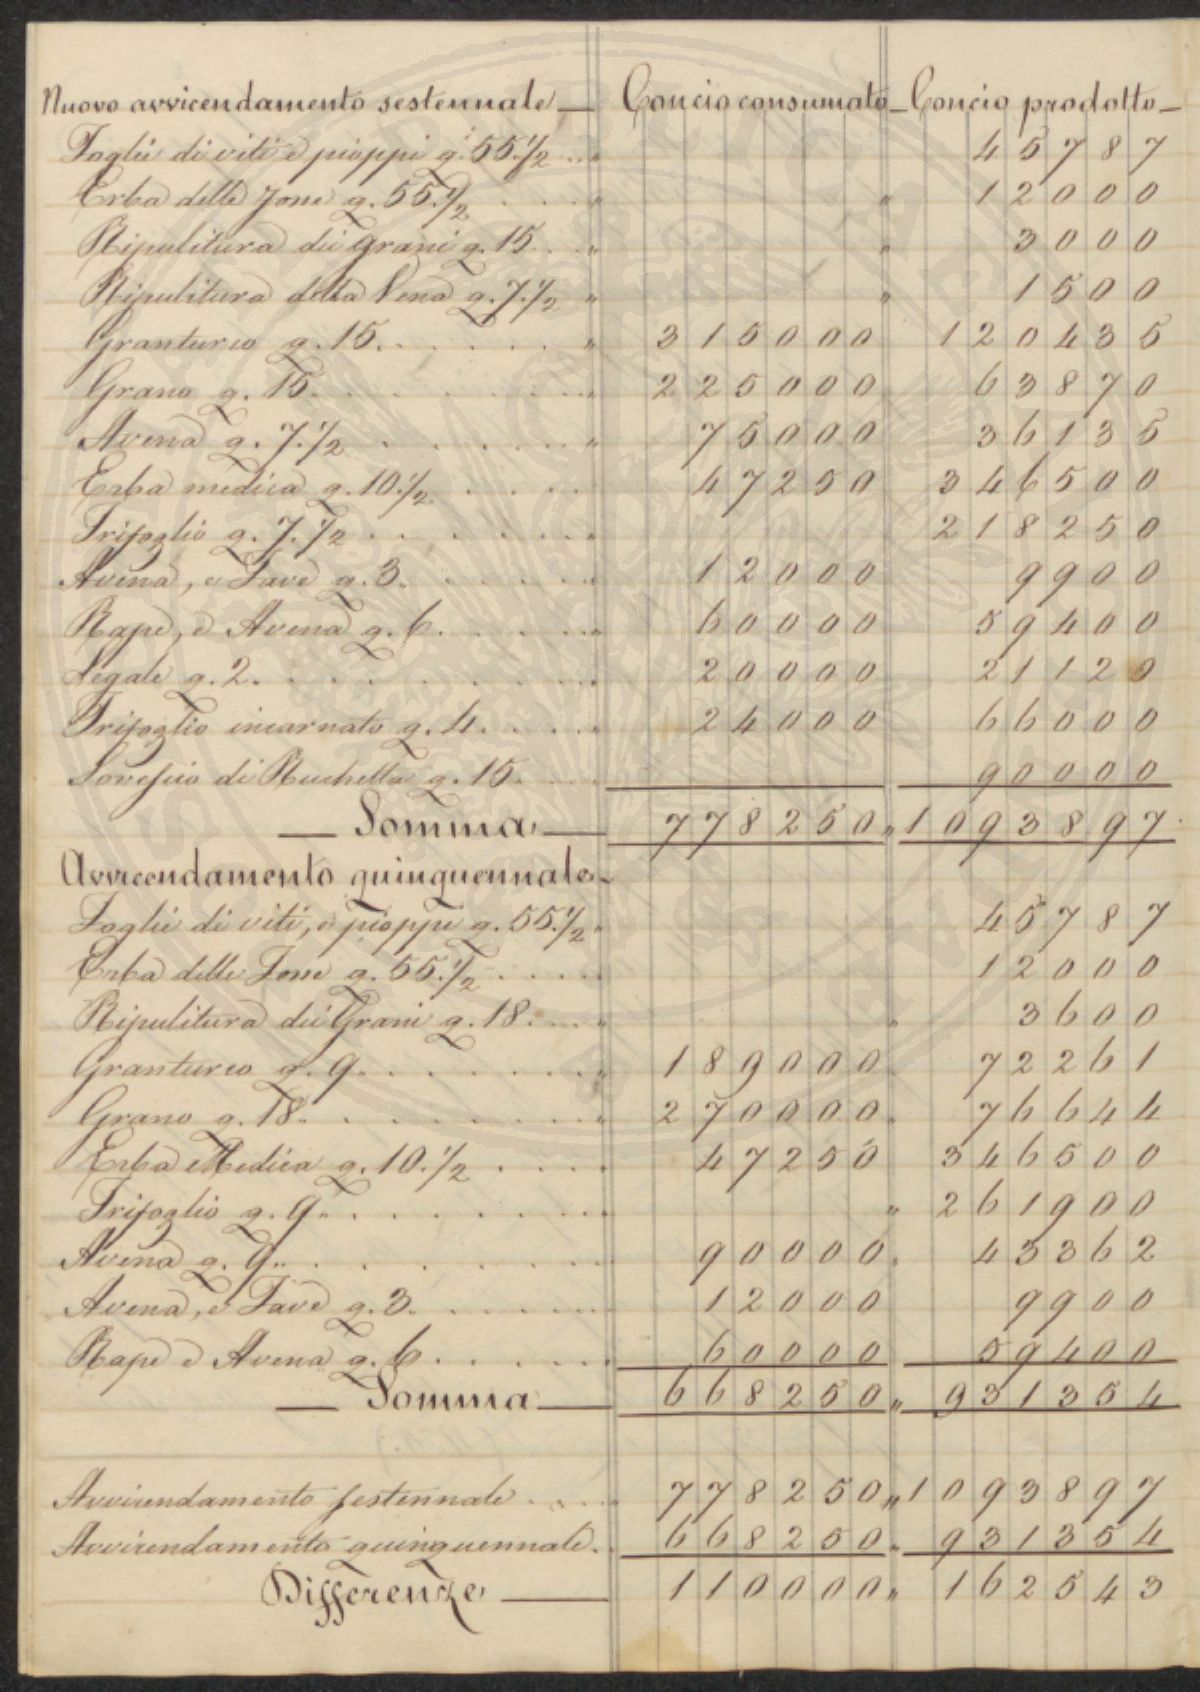 Nuovo avvicendamento sestennale — Concio consumato — Concio prodotto —
Foglie di viti e pioppi q. 55.1/2 ... " 45787
Erba delle Zone q. 55.1/2 . . . . " " 12000
Ripulitura dei Grani q. 15. . . " " 3000
Ripulitura della Vena q. 7.1/2 " " 1500
Granturco q. 15. . . . . . . " 315000 120435
Grano q. 15. . . . . . . . 225000 63870
Avena q. 7.1/2 . . . . . . " 75000 36135
Erba medica q. 10.1/2. . . . . 47250 346500
Trifoglio q. 7.1/2 . . . . . . . 218250
Avena, e Fave q. 3. . . . . . 12000 9900
Rape, e Avena q. 6. . . . . " 60000 59400
Segale q. 2. . . . . . . . . 20000 21120
Trifoglio incarnato q. 4. . . . 24000 66000
Sovescio di Ruchetta q. 15. . . 90000
— Somma — 778250 " 1093897
Avvicendamento quinquennale —
Foglie di viti, e pioppi q. 55.1/2 " 45787
Erba delle Zone q. 55.1/2 . . . . 12000
Ripulitura dei Grani q. 18. . . " " 3600
Granturco q. 9. . . . . . . 189000 72261
Grano q. 18. . . . . . . . " 270000 " 76644
Erba Medica q. 10.1/2 . . . . 47250 346500
Trifoglio q. 9. . . . . . . . " 261900
Avena q. 9. . . . . . . . 90000 . 43362
Avena, e Fave q. 3. . . . . . 12000 9900
Rape e Avena q. 6. . . . . . 60000 59400
— Somma — 668250 " 931354
Avvicendamento sestennale . . . . 778250 " 1093897
Avvicendamento quinquennale . . 668250 " 931354
Differenze — 110000 " 162543